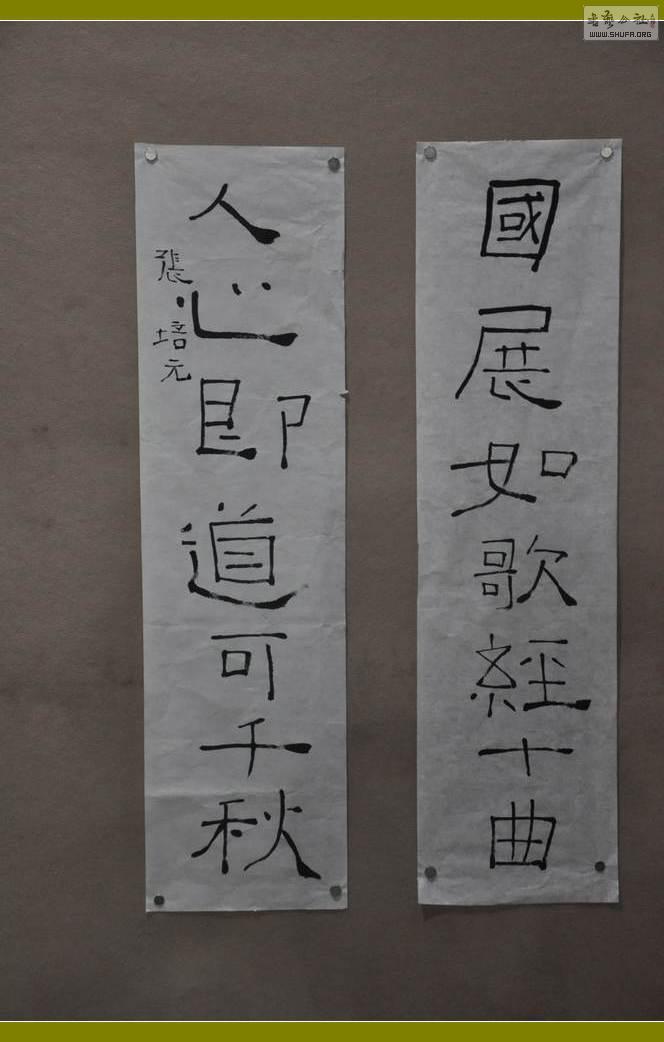 國展如歌經十曲
人心即道可千秋
張培元
书艺公社
WWW.SHUFA.ORG